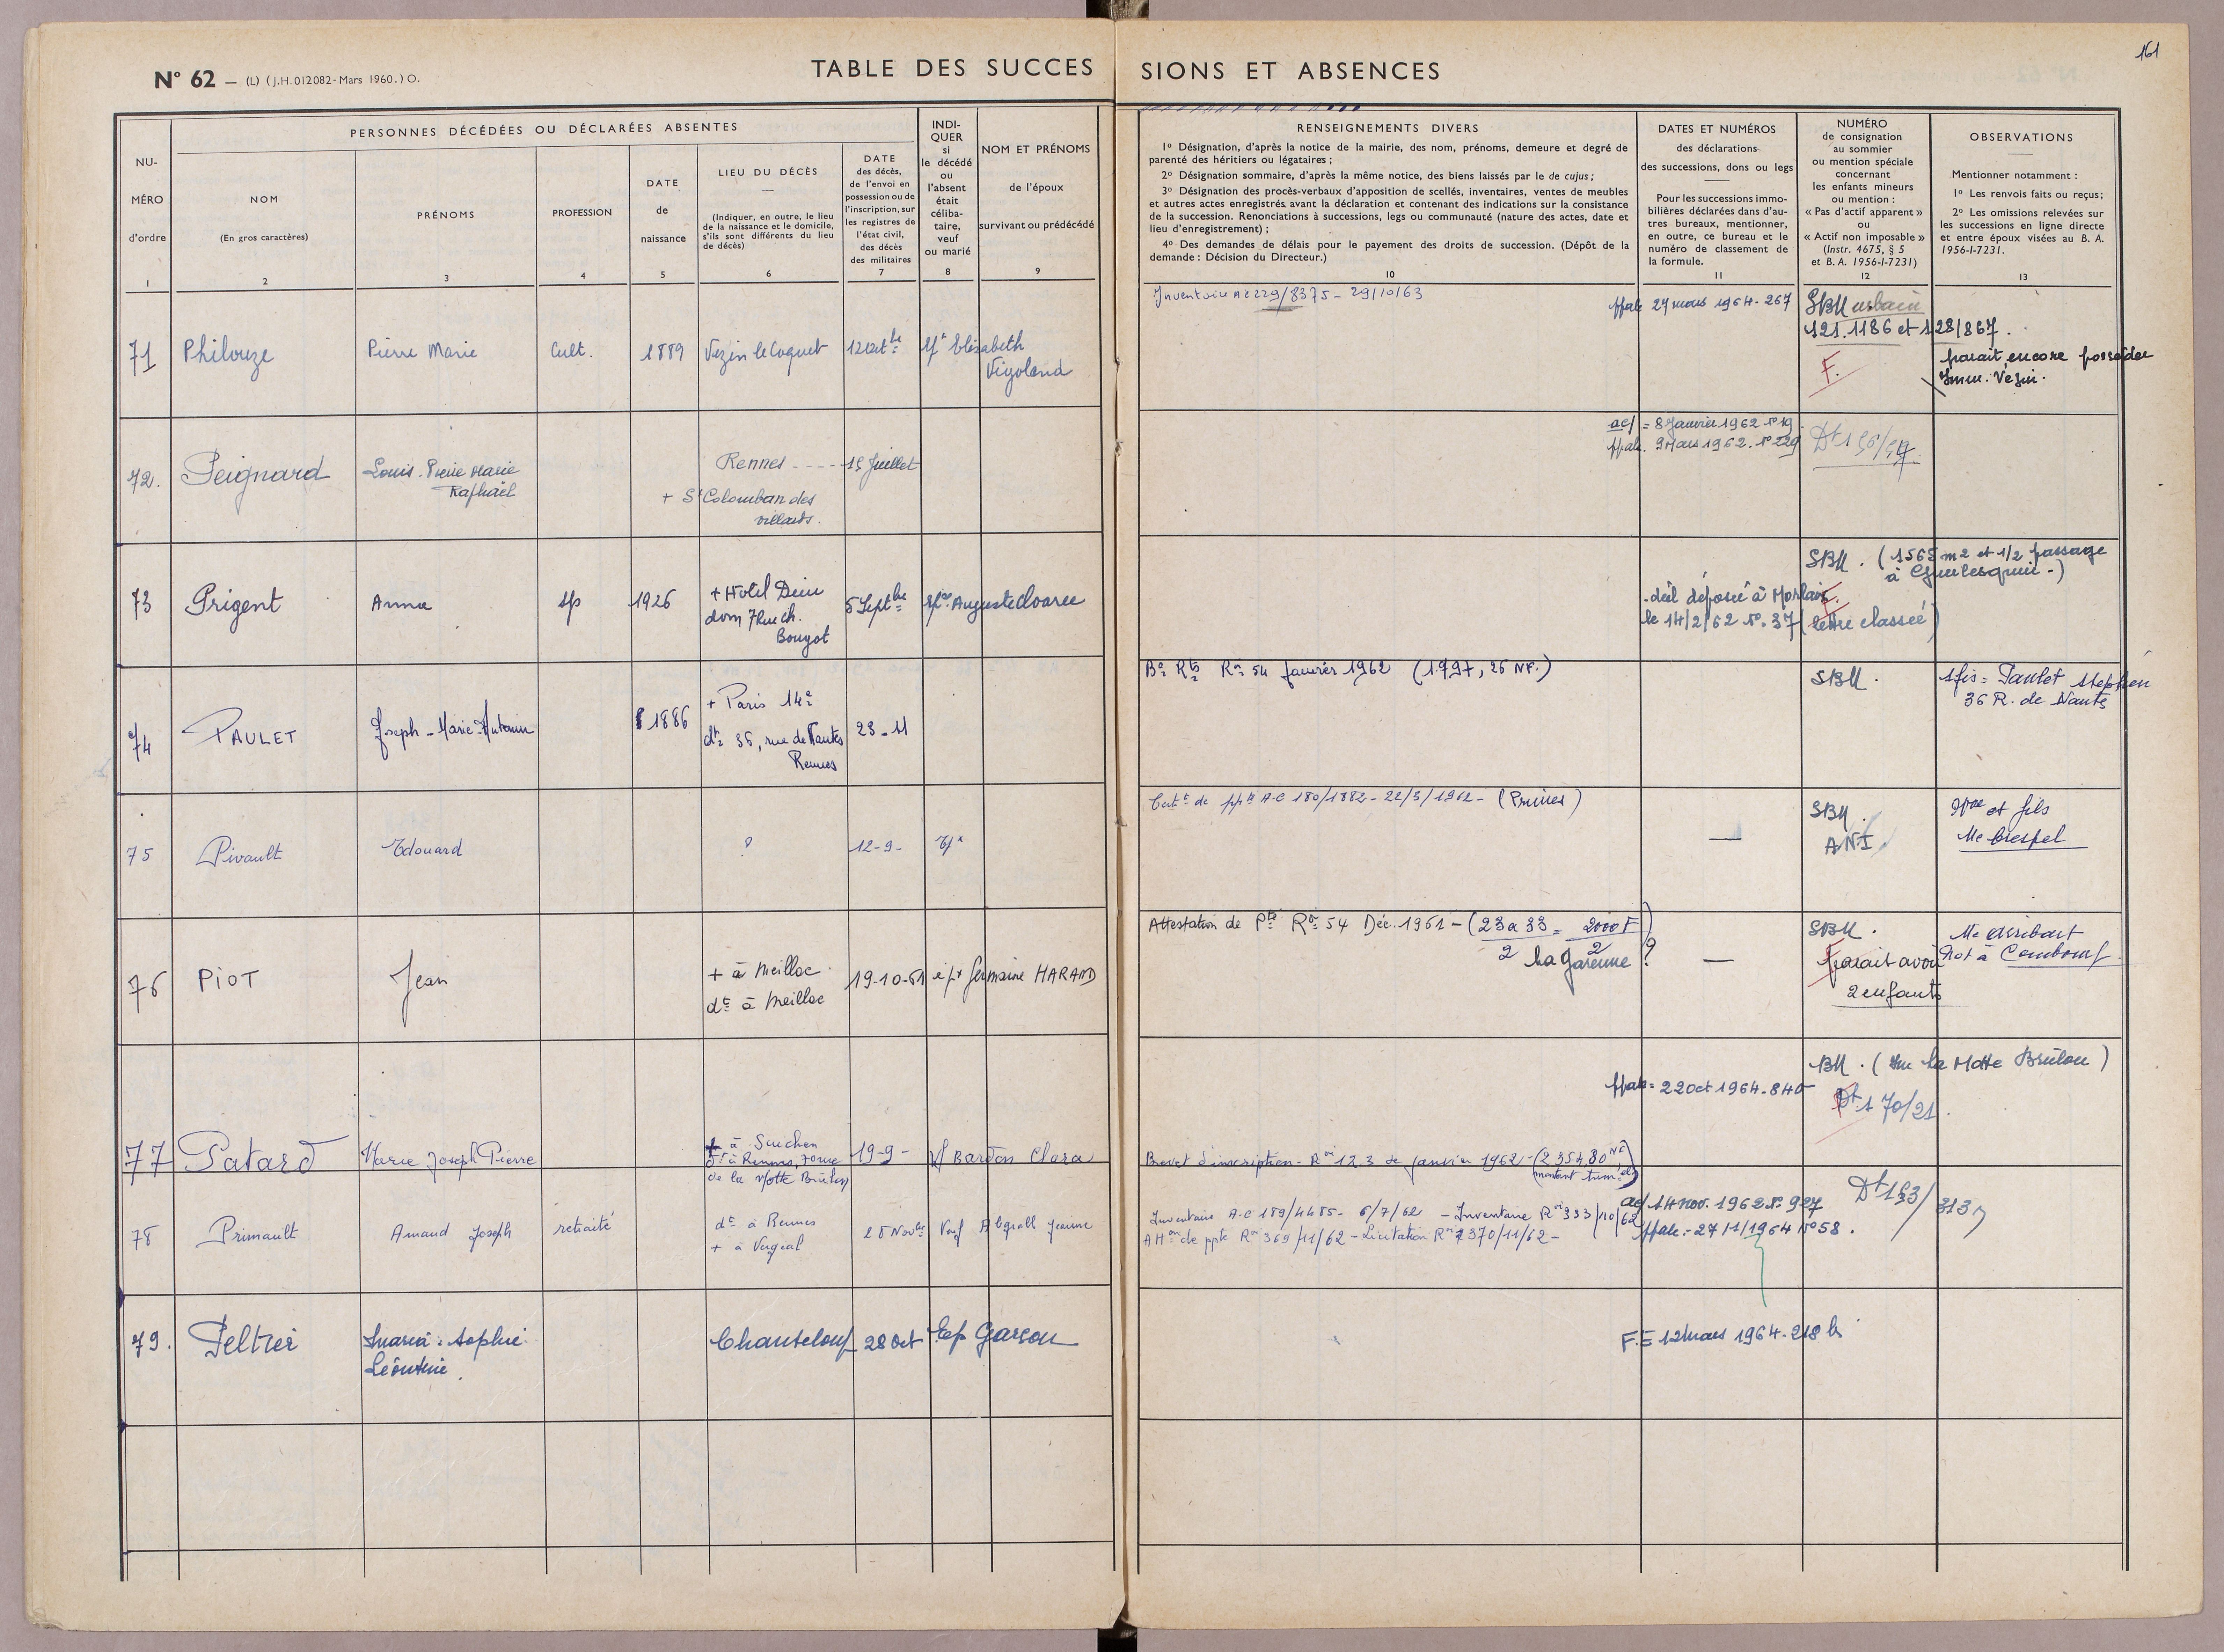 161
N° 62 — (L) (J.H. 012082-Mars 1960.) O.
TABLE DES SUCCESSIONS ET ABSENCES
PERSONNES DÉCÉDÉES OU DÉCLARÉES ABSENTES
NU-
MÉRO
d'ordre
1
NOM
(En gros caractères)
2
PRÉNOMS
3
PROFESSION
4
DATE
de
naissance
5
LIEU DU DÉCÈS
—
(Indiquer, en outre, le lieu
de la naissance et le domicile,
s'ils sont différents du lieu
de décès)
6
DATE
des décès,
de l'envoi en
possession ou de
l'inscription, sur
les registres de
l'état civil,
des décès
des militaires
7
INDI-
QUER
si
le décédé
ou
l'absent
était
céliba-
taire,
veuf
ou marié
8
NOM ET PRÉNOMS
de l'époux
survivant ou prédécédé
9
RENSEIGNEMENTS DIVERS
1° Désignation, d'après la notice de la mairie, des nom, prénoms, demeure et degré de
parenté des héritiers ou légataires ;
2° Désignation sommaire, d'après la même notice, des biens laissés par le de cujus ;
3° Désignation des procès-verbaux d'apposition de scellés, inventaires, ventes de meubles
et autres actes enregistrés avant la déclaration et contenant des indications sur la consistance
de la succession. Renonciations à successions, legs ou communauté (nature des actes, date et
lieu d'enregistrement) ;
4° Des demandes de délais pour le payement des droits de succession. (Dépôt de la
demande : Décision du Directeur.)
10
DATES ET NUMÉROS
des déclarations
des successions, dons ou legs
Pour les successions immo-
bilières déclarées dans d'au-
tres bureaux, mentionner,
en outre, ce bureau et le
numéro de classement de
la formule.
11
NUMÉRO
de consignation
au sommier
ou mention spéciale
concernant
les enfants mineurs
ou mention :
« Pas d'actif apparent »
ou
« Actif non imposable »
(Instr. 4675, § 5
et B. A. 1956-I-7231)
12
OBSERVATIONS
Mentionner notamment :
1° Les renvois faits ou reçus;
2° Les omissions relevées sur
les successions en ligne directe
et entre époux visées au B. A.
1956-I-7231.
13
71 Philouze Pierre Marie Cult. 1889 Vezin le Coquet Elisabeth
Vigoland
Inventaire AC 229/8375 - 29/10/63
27 mars 1964 - 267
SBM urbain
121.1186 et 128/867.
F.
parait encore posséder
Imm. Vézin.
72. Peignard Louis. Pierre Marie
Raphaël
Rennes ---- 15 Juillet
+ St Colomban des
villards.
= 8 Janvier 1962 N° 19
9 Mars 1962. N° 229
73 Prigent Anna sp 1926 + Hotel Dieu
dom 7 Rue Ch.
Bougot
5 Septbre Auguste Cloarec
SBM. (1565 m2 et 1/2 passage
à
- décl déposée à Morlaix.
le 14/2/62 N°. 37 (lettre classée)
74 PAULET Joseph - Marie - Antonin 1886 + Paris 14e
dt 36, rue de Nantes
Rennes
23 - 11
54 Janvier 1962 (1.797, 26 NF.)
SBM.
Paulet Stephen
36 R. de Nantes
75 Pivault Edouard ? 12-9-
180/1882 - 22/3/1962 -
—
SBM.
A.N.I.
et fils
76 PIOT Jean + à Meillac
dt à Meillac
19-10-61 Germaine HARAND
Attestation de Pté Ron 54 Déc. 1961 - (23a33 = 2000 F)
2 2
La Garenne ?
—
SBM.
parait avoir
2 enfants
Not à Combourg
77 Patard Marie Joseph Pierre + à Guichen
dt à Rennes, 70 rue
de la Motte Brûlon
19-9- Bardon Clara
Brevet d'inscription - Ron 123 de janvier 1962 - (2354,80 NF
22 Oct 1964 - 840
BM. ( La Motte Brûlon )
Dt 170/21.
78 Primault Amand Joseph retraité dt à Rennes
+ à Vergeal
Veuf Abgrall Jeanne
Inventaire A.C 189/4485 - 6/7/62 - Inventaire Ron 333/10/62
de ppté Ron 369/11/62 - Licitation Ron 370/11/62 -
14 nov. 1962 N° 927
N° 58.
79. Peltier Maria. Sophie.
Léontine.
Chanteloup 28 Oct Ep Garçon
F.E 12 Mars 1964 - 218 bis